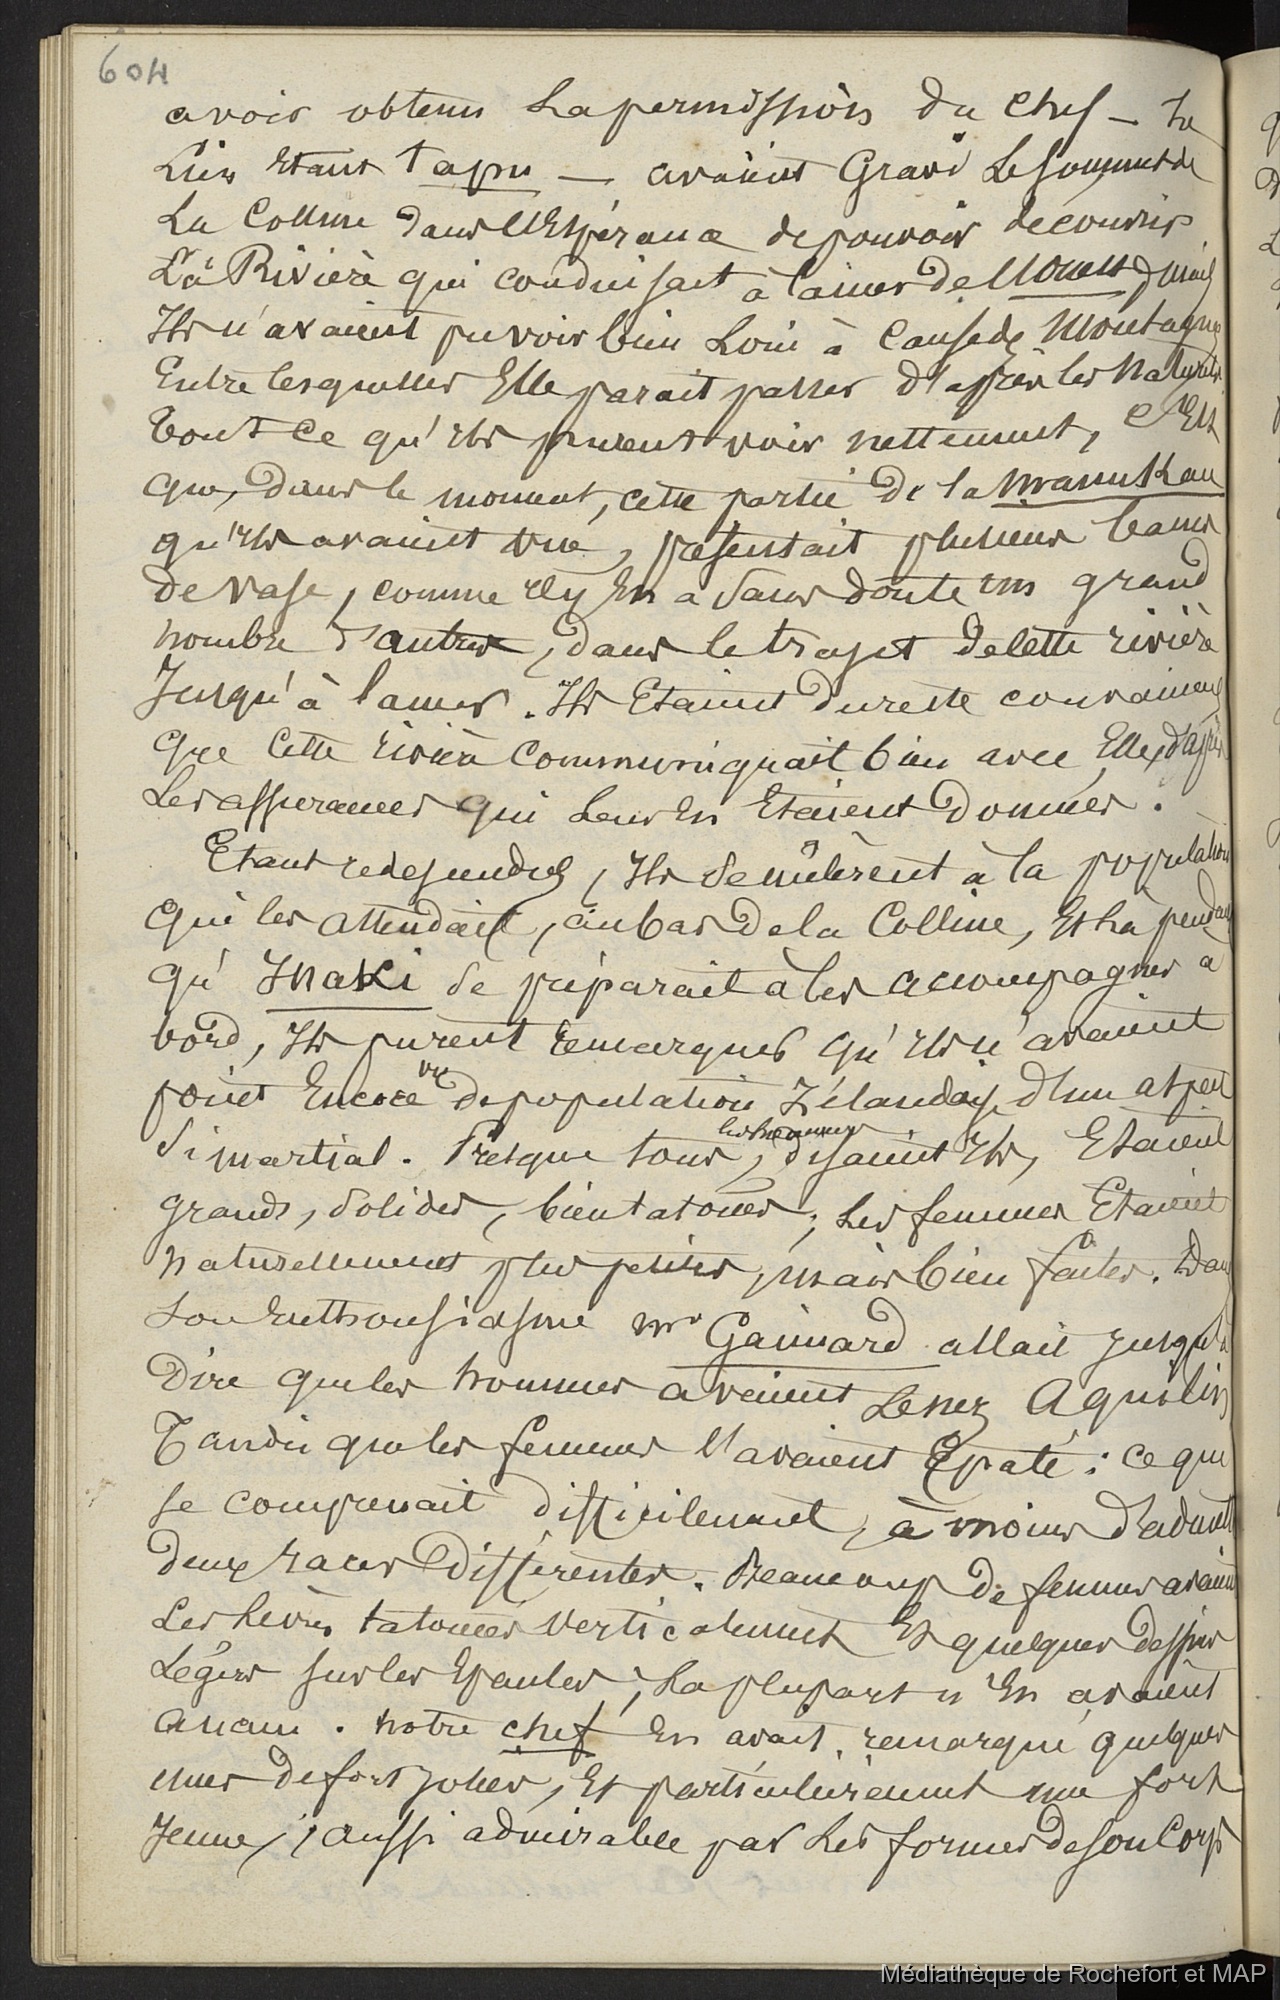 604
avoir obtenu La permission du Chef — Le
Lieu Etant tapu — avaient Gravi Le Sommet de
La Colline dans l'Espérance de pouvoir decouvrir
La Rivière qui conduisait à la mer de l'Ouest, mais
Ils n'avaient pu voir bien Loin à Cause des Montagnes
Entre lesquelles Elle parait passer d'après les Naturels.
Tout Ce qu'ils purent voir nettement, C'Est
que, dans le moment, cette partie de la Manukau
qu'ils avaient vue, présentait plusieurs bancs
de Vase, comme il y En a Sans doute un grand
nombre d'autres, dans le trajet de Cette rivière
Jusqu'à la mer. Ils Etaient du reste convaincus
que Cette rivière Communiquait bien avec Elle, d'après
Les assurances qui Leur En Etaient Données.
Etant redescendus, Ils Se mêlèrent à la population
qui les Attendait, au bas de la Colline, Et La pendant
qu' Inaki Se préparait à les accompagner à
bord, Ils purent remarquer qu'ils n'avaient
point Encore vu de population Zélandaise d'un aspect
Si martial. Presque tous les hommes, disaient Ils, Etaient
grands, Solides, bien tatoués ; Les femmes Etaient
naturellement plus petites, mais bien faites. Dans
Son Enthousiasme Mr Gaimard allait jusqu'à
Dire que les hommes avaient Le nez Aquilin
Tandis que les femmes l'avaient Epaté : ce qui
se comprenait difficilement, à moins d'admettre
deux races Différentes. Beaucoup de femmes avaient
Les Lèvres tatouées Verticalement Et quelques dessins
Légers sur les Epaules ; La plupart n'En avaient
Aucun. Notre chef En avait remarqué quelques
unes de fort jolies, Et particulièrement une fort
Jeune, aussi admirable par Les formes de son Corps
Médiathèque de Rochefort et MAP